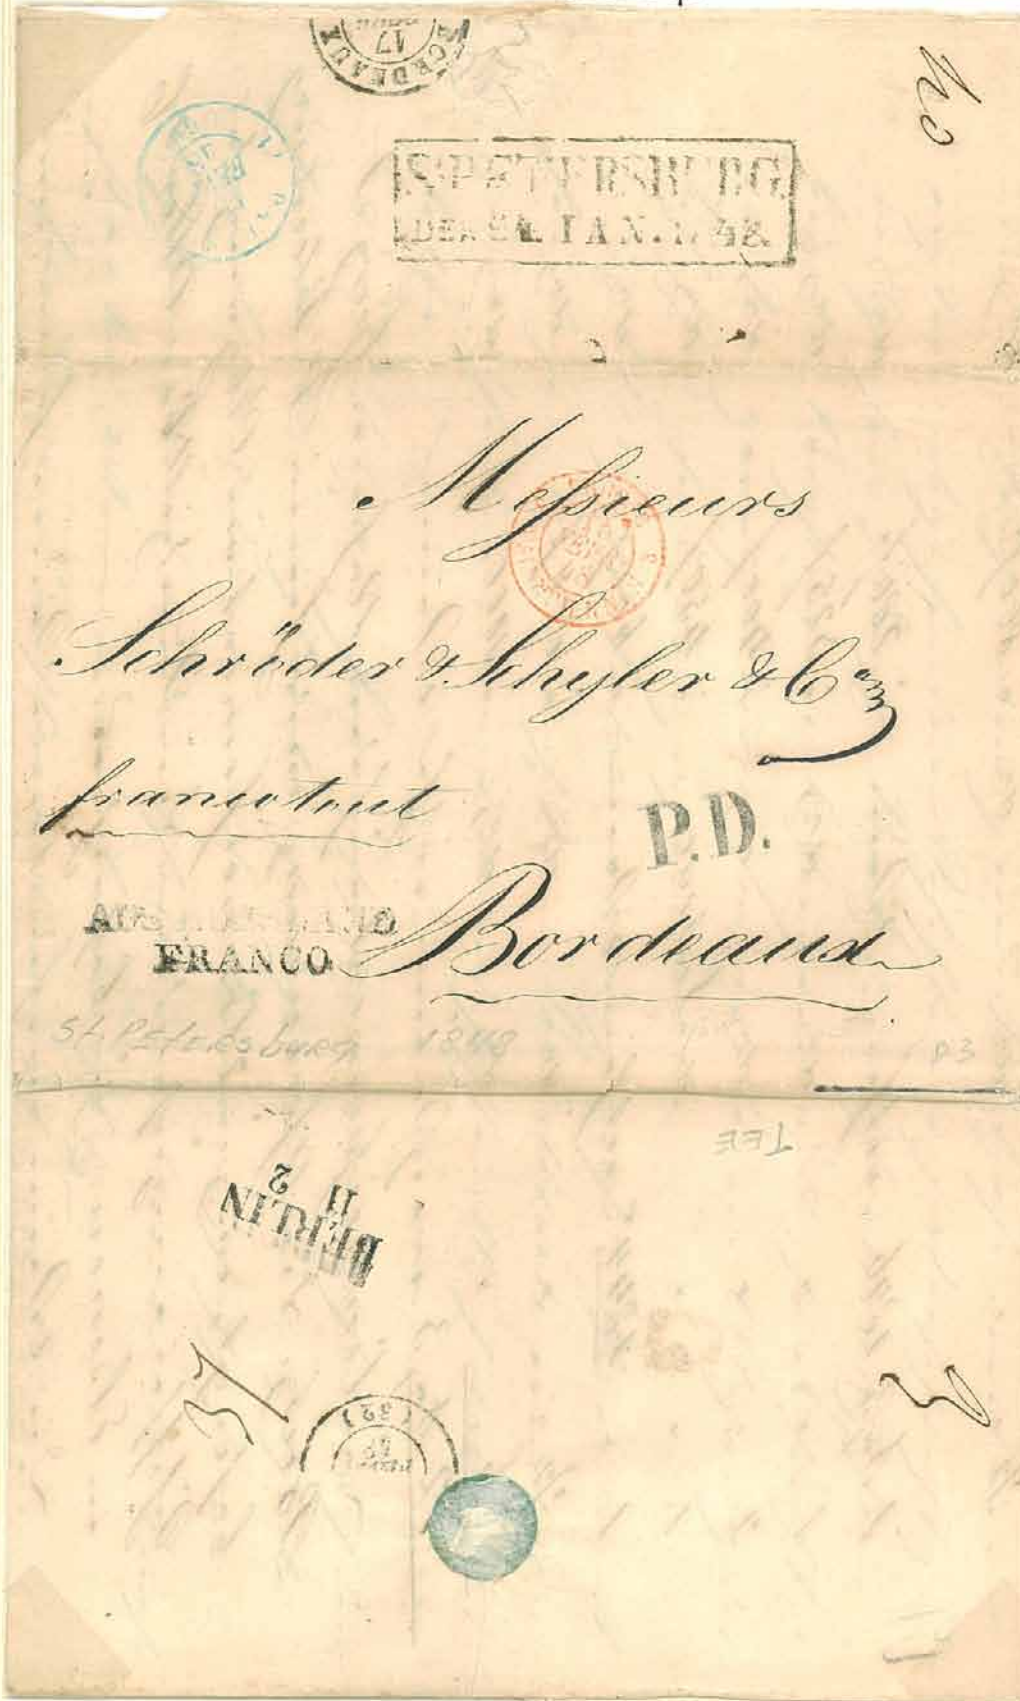 BORDEAUX
17
40
S. PETERSBURG
24. IAN. 1848
Messieurs
Schröder & Schyler & Co
franco tout
P.D.
AUS RUSSLAND
FRANCO
Bordeaux
St. Petersburg 1848
P3
TEE
BERLIN
11 2
37
(32)